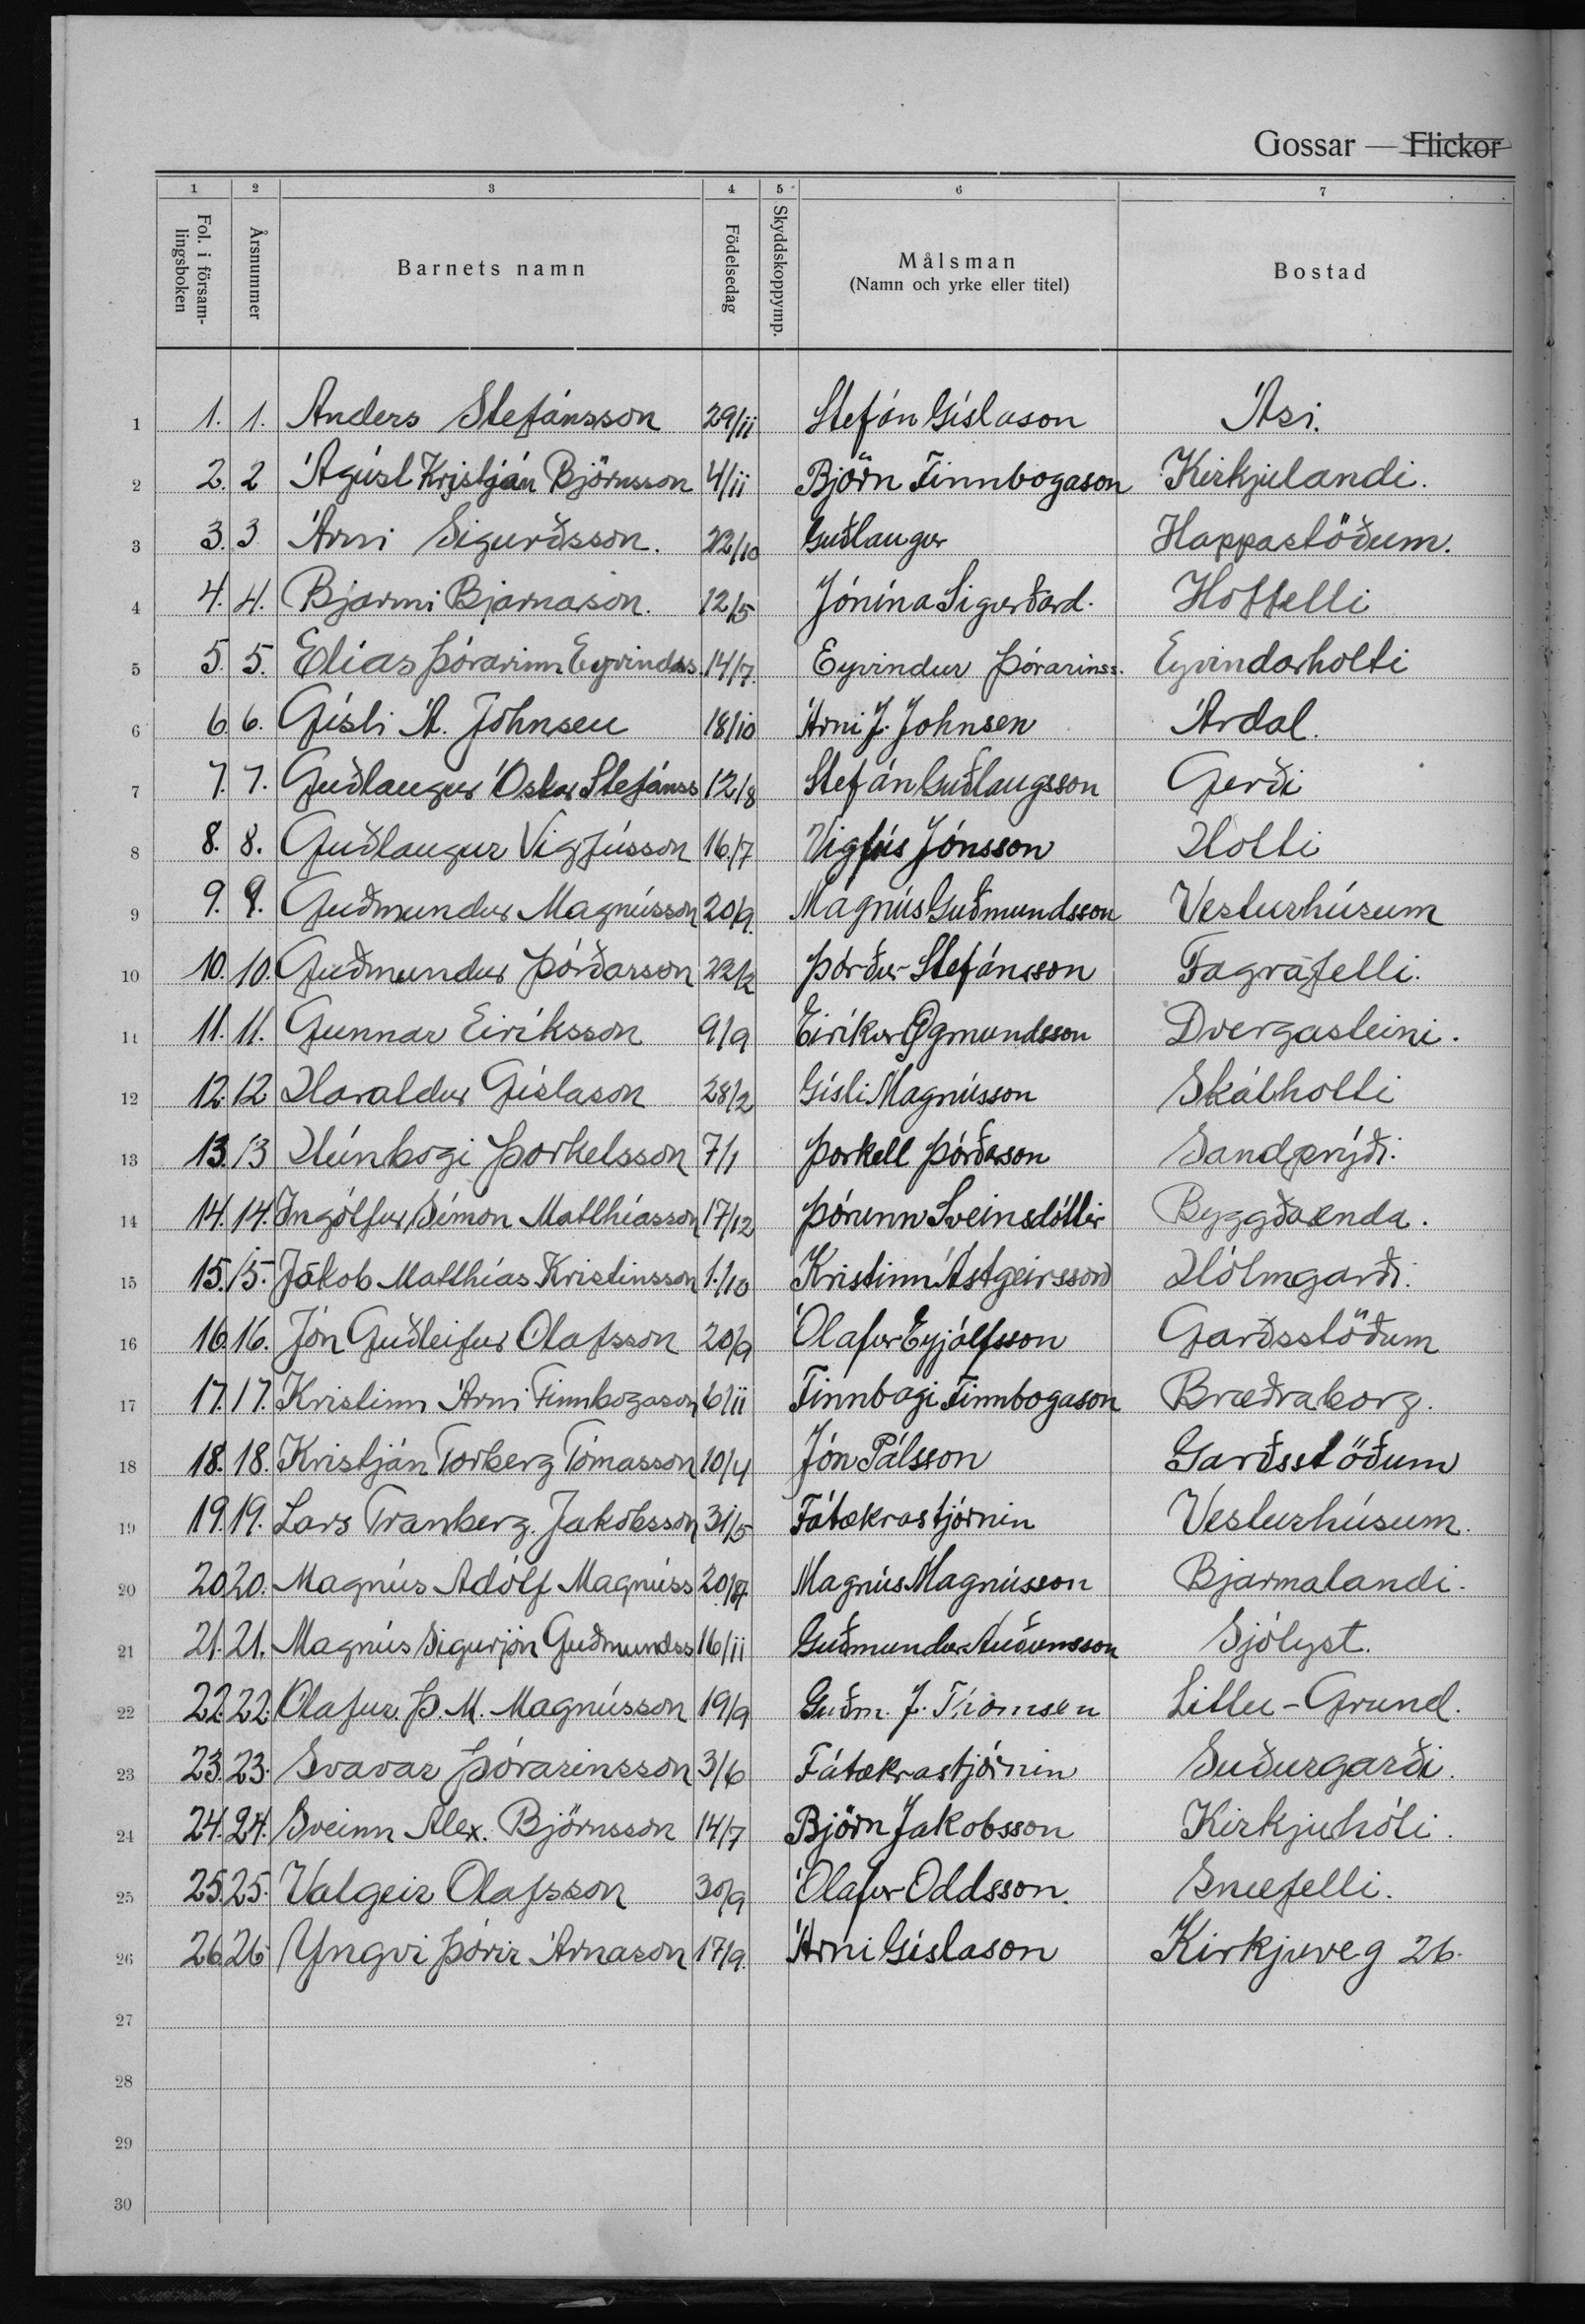 Gossar — Flickor
1 2 3 4 5 6 7
Fol. i försam-lingsboken Årsnummer Barnets namn Födelsedag Skyddskoppymp. Målsman (Namn och yrke eller titel) Bostad
1 1. 1. Anders Stefánsson 29/11 Stefán Gíslason Ási.
2 2. 2 Ágúst Kristján Björnsson 4/11 Björn Finnbogason Kirkjulandi.
3 3. 3 Árni Sigurðsson. 22/10 Guðlaugur Happastöðum.
4 4. 4. Bjarni Bjarnason. 12/5 Jónína Sigurðard. Hoffelli
5 5. 5. Elías Þórarinn Eyvindss. 14/7. Eyvindur Þórarinss. Eyvindarholti
6 6 6. Gísli Á. Johnsen 18/10 Árni J. Johnsen Árdal.
7 7. 7. Guðlaugur Óskar Stefánss 12/8 Stefán Guðlaugsson Gerði
8 8. 8. Guðlaugur Vigfússon 16/7 Vigfús Jónsson Holti
9 9. 9. Guðmundur Magnússon 20/9. Magnús Guðmundsson Vesturhúsum
10 10. 10. Guðmundur Þórðarson 22/2 Þórður Stefánsson Fagrafelli.
11 11. 11. Gunnar Eiríksson 9/9 Eiríkur Ögmundsson Dvergasteini.
12 12. 12 Haraldur Gíslason 28/2 Gísli Magnússon Skálholti
13 13. 13 Húnbogi Þorkelsson 7/1 Þorkell Þórðarson Sandprýði.
14 14. 14. Ingólfur Símon Matthíasson 17/12 Þórunn Sveinsdóttir Byggðaenda.
15 15. 15. Jakob Matthías Kristinsson 1./10 Kristinn Ástgeirsson Hólmgarði.
16 16. 16. Jón Guðleifur Ólafsson 20/9 Ólafur Eyjólfsson Garðsstöðum
17 17. 17. Kristinn Árni Finnbogason 6/11 Finnbogi Finnbogason Bræðraborg.
18 18. 18. Kristján Torberg Tómasson 10/4 Jón Pálsson Garðsstöðum
19 19. 19. Lars Tranberg Jakobsson 31/5 Fátækrastjórnin Vesturhúsum.
20 20. 20. Magnús Adólf Magnúss Magnús Magnússon Bjarmalandi.
21 21. 21. Magnús Sigurjón Guðmundss 16/11 Guðmundur Auðunsson Sjólyst.
22 22. 22. Ólafur. Þ. M. Magnússon 19/9 Guðm. J. Thomsen Litlu-Grund.
23 23. 23. Svavar Þórarinsson 3/6 Fátækrastjórnin Suðurgarði.
24 24. 24. Sveinn Alex. Björnsson 14/7 Björn Jakobsson Kirkjuhóli.
25 25. 25. Valgeir Ólafsson 30/9 Ólafur Oddsson. Snæfelli.
26 26 26 Yngvi Þórir Árnason 17/9. Árni Gíslason Kirkjuveg 26.
27
28
29
30